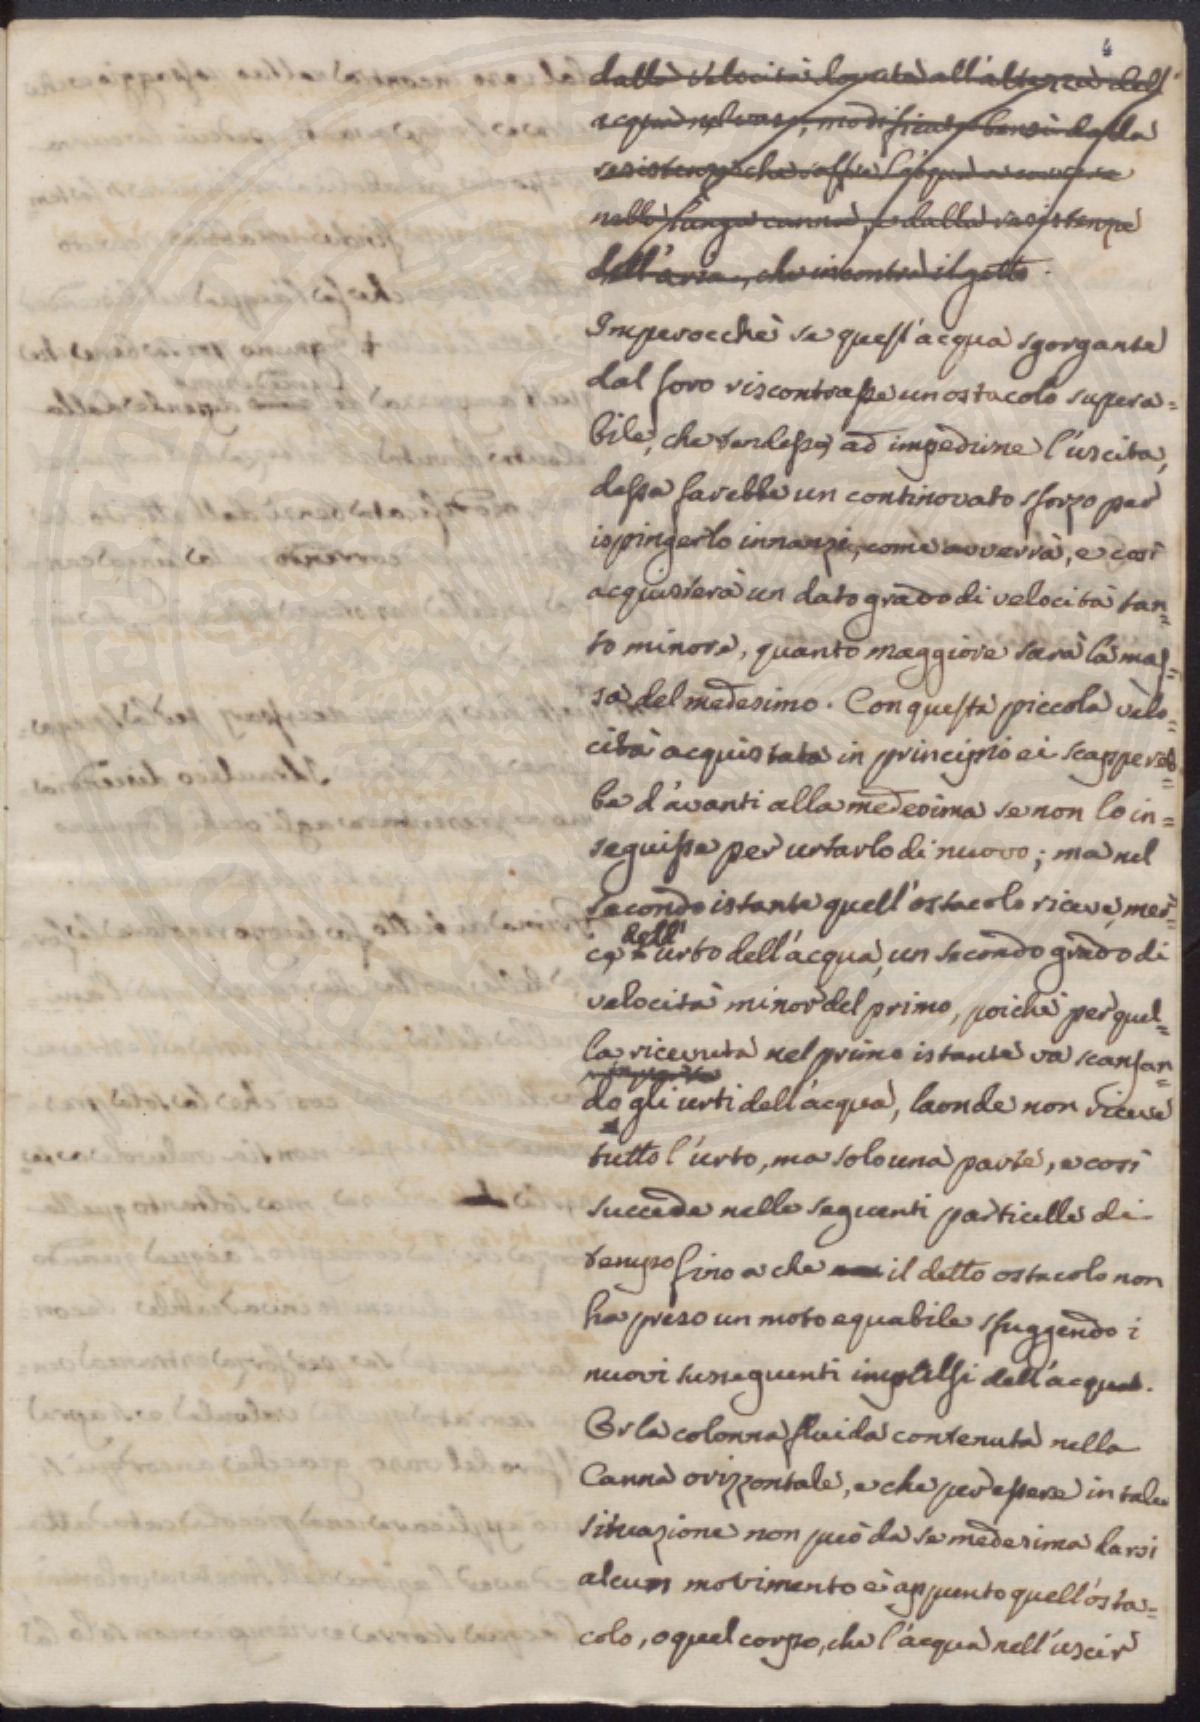 4
dalla velocità dovuta all'altezza dell'
acqua nel vaso, modificata bensì dalla
resistenza che soffre l'acqua a muovere
nella lunga canna, e dalla resistenza
dell'aria, che incontra il getto.
Imperocchè se quest'acqua sgorgante
dal foro riscontrasse un ostacolo supera=
bile, che tendesse ad impedirne l'uscita,
dessa farebbe un continovato sforzo per
ispingerlo innanzi, come avverrà, e così
acquisterà un dato grado di velocità tan=
to minore, quanto maggiore sarà la mas=
sa del medesimo. Con questa piccola velo=
cità acquistata in principio ei scappereb=
be d'avanti alla medesima se non lo in=
seguisse per urtarlo di nuovo; ma nel
secondo istante quell'ostacolo riceve, mer=
cè dell' urto dell'acqua, un secondo grado di
velocità minor del primo, poichè per quel=
la ricevuta nel primo istante va scansan=
do gli urti dell'acqua, laonde non riceve
tutto l'urto, ma solo una parte, e così
succede nelle seguenti particelle di
tempo fino a che il detto ostacolo non
ha preso un moto equabile sfuggendo i
nuovi susseguenti impulsi dell'acqua.
Or la colonna fluida contenuta nella
Canna orizzontale, e che per essere in tale
situazione non può da se medesima darsi
alcun movimento è appunto quell'osta=
colo, o quel corpo, che l'acqua nell'uscir